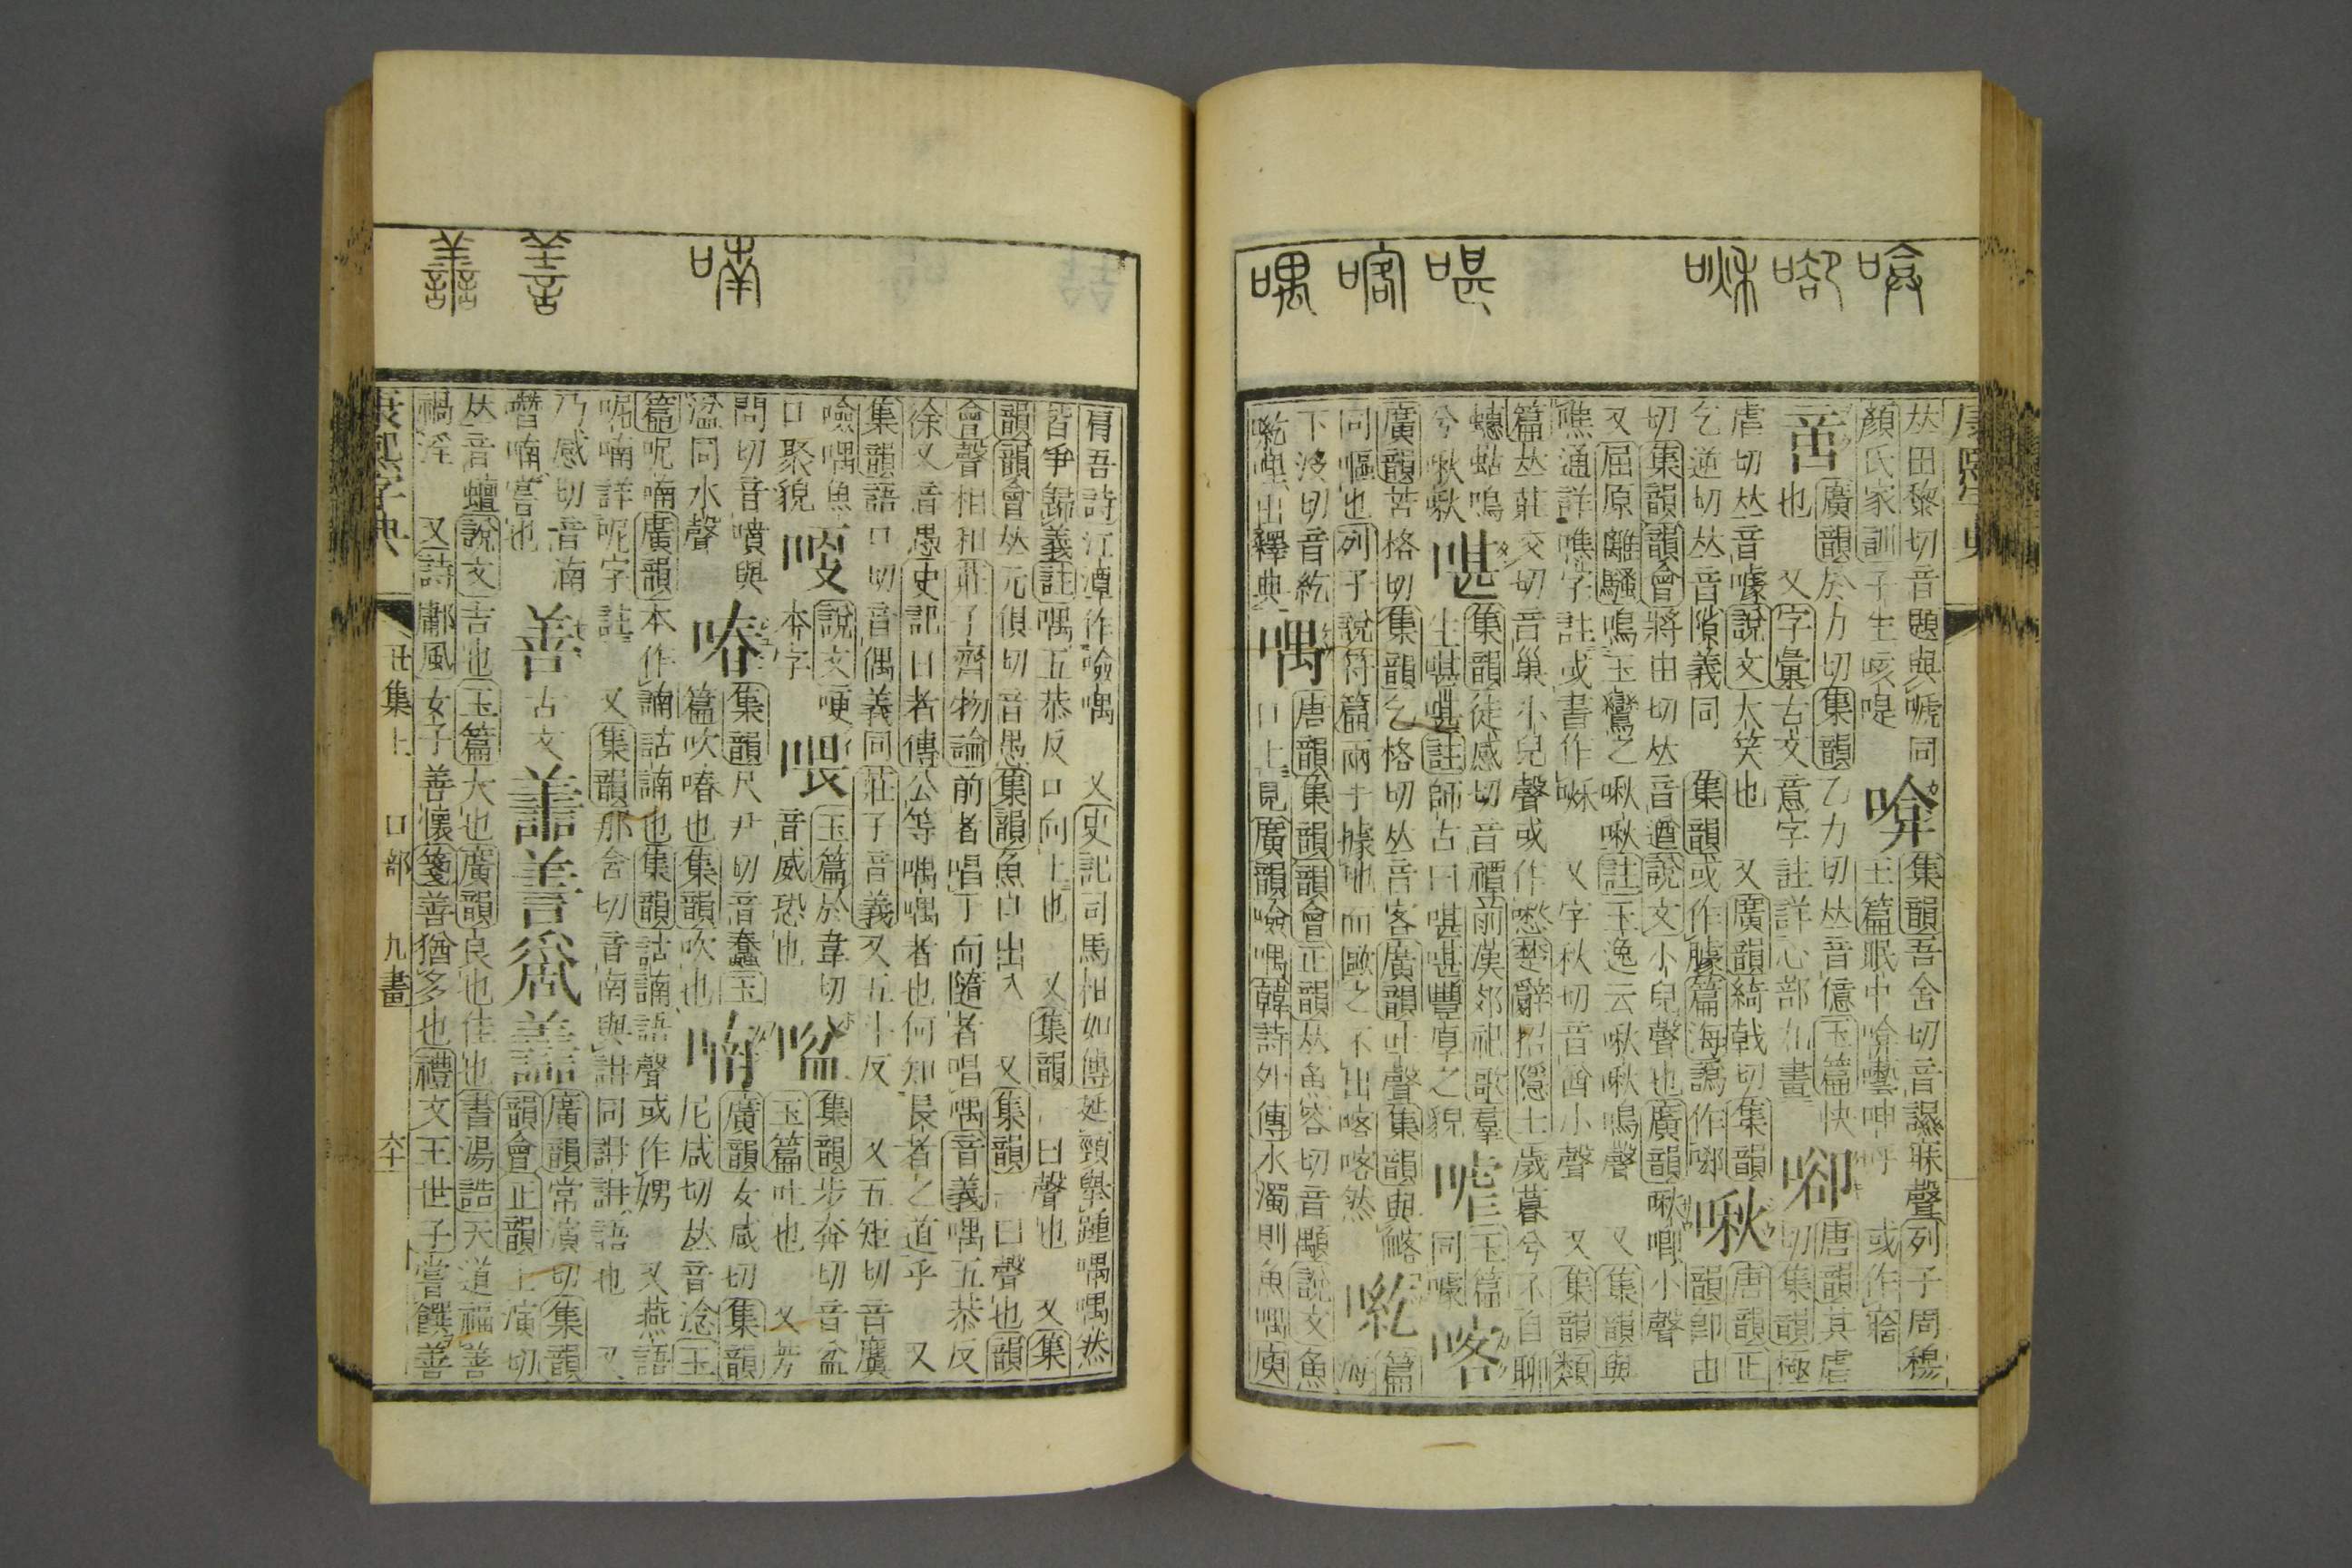 𠀤田黎切音題與嗁同
顏氏家訓子生咳㖷
啽
集韻吾含切音
寐聲列子周穆
王篇眠中啽囈呻呼 或作
廣韻於力切集韻乙力切𠀤音億玉篇快
也 又字彙古文意字註詳心部九畫
唐韻其虐
切集韻極
虐切𠀤音噱說文大笑也 又廣韻綺戟切集韻
乞逆切𠀤音隙義同 集韻或作臄篇海譌作
啾
唐韻正
韻卽由
切集韻韻會將由切𠀤音遒說文小兒聲也廣韻啾喞小聲
又屈原離騷鳴玉鸞之啾啾註王逸云啾啾鳴聲 又集韻與
噍通詳噍字註或書作 又字秋切音酋小聲 又集韻類
篇𠀤莊交切音巢小兒聲或作愁楚辭招隱士歲暮兮不自聊
蟪蛄鳴
兮啾啾
啿
集韻徒感切音禫前漢郊祀歌羣
生啿啿註師古曰啿啿豐厚之貌
㖸
玉篇
同噱
喀
廣韻苦格切集韻乞格切𠀤音客廣韻吐聲集韻與
同嘔也列子說符篇兩手據地而歐之不出喀喀然
篇
海
下沒切音紇
出釋典
喁
唐韻集韻韻會正韻𠀤魚容切音顒說文魚
口上見廣韻噞喁韓詩外傳水濁則魚喁庾
肩吾詩江潭作噞喁 又史記司馬相如傳延頸舉踵喁喁然
皆爭歸義註喁五恭反口向上也 又集韻一曰聲也 又集
韻韻會𠀤元俱切音愚集韻魚口出入 又集韻一曰聲也韻
會聲相和莊子齊物論前者唱于而隨者唱喁音義喁五恭反
徐又音愚史記日者傳公等喁喁者也何知長者之道乎 又
集韻語口切音偶義同莊子音義又五斗反 又五矩切音麌
噞喁魚
口聚貌
㖼
說文哽
本字
喂
玉篇於韋切
音威恐也
集韻步奔切音盆
玉篇吐也 又芳
問切音噴與
湓同水聲
㖺
集韻尺尹切音蠢玉
篇吹㖺也集韻吹也
喃
廣韻女咸切集韻
尼咸切𠀤音諵玉
篇呢喃廣韻本作諵詀諵也集韻詀諵語聲或作 又燕語
呢喃詳呢字註 又集韻那含切音南與䛁同䛁䛁語也 又
乃感切音湳
喃嘗也
善
古文
譱
廣韻常演切集韻
韻會正韻上演切
𠀤音蟺說文吉也玉篇大也廣韻良也佳也書湯誥天道福善
禍淫 又詩鄘風女子善懷箋善猶多也禮文王世子嘗饌善
康熙字典
丑集上 口部 九畫 六十一